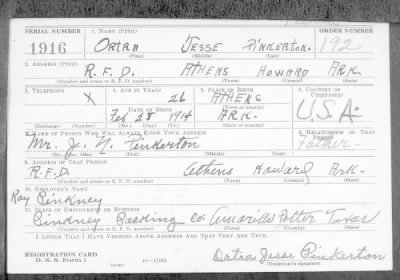 SERIAL NUMBER 1. NAME (Print) ORDER NUMBER
1916 ORTRA JESSE PINKERTON. 192
(First) (Middle) (Last)
2. ADDRESS (Print)
R.F.D. ATHENS HOWARD ARK.
(Number and street or R. F. D. number) (Town) (County) (State)
3. TELEPHONE 4. AGE IN YEARS 5. PLACE OF BIRTH 6. COUNTRY OF CITIZENSHIP
X 26 ATHENS
DATE OF BIRTH U.S.A.
Feb 28 1914 ARK.
(Exchange) (Number) (Mo.) (Day) (Yr.) (State or country)
7. NAME OF PERSON WHO WILL ALWAYS KNOW YOUR ADDRESS 8. RELATIONSHIP OF THAT PERSON
Mr. J. N. Pinkerton Father
(Mr., Mrs., Miss) (First) (Middle) (Last)
9. ADDRESS OF THAT PERSON
R.F.D. Athens Howard Ark.
(Number and street or R. F. D. number) (Town) (County) (State)
10. EMPLOYER'S NAME
Ray Pinkney
11. PLACE OF EMPLOYMENT OR BUSINESS
Pinkney Packing Co Amarillo Potter Texas
(Number and street or R. F. D. number) (Town) (County) (State)
I AFFIRM THAT I HAVE VERIFIED ABOVE ANSWERS AND THAT THEY ARE TRUE.
REGISTRATION CARD
D. S. S. Form 1 (over) 16-17105 Ortra Jesse Pinkerton
(Registrant's signature)